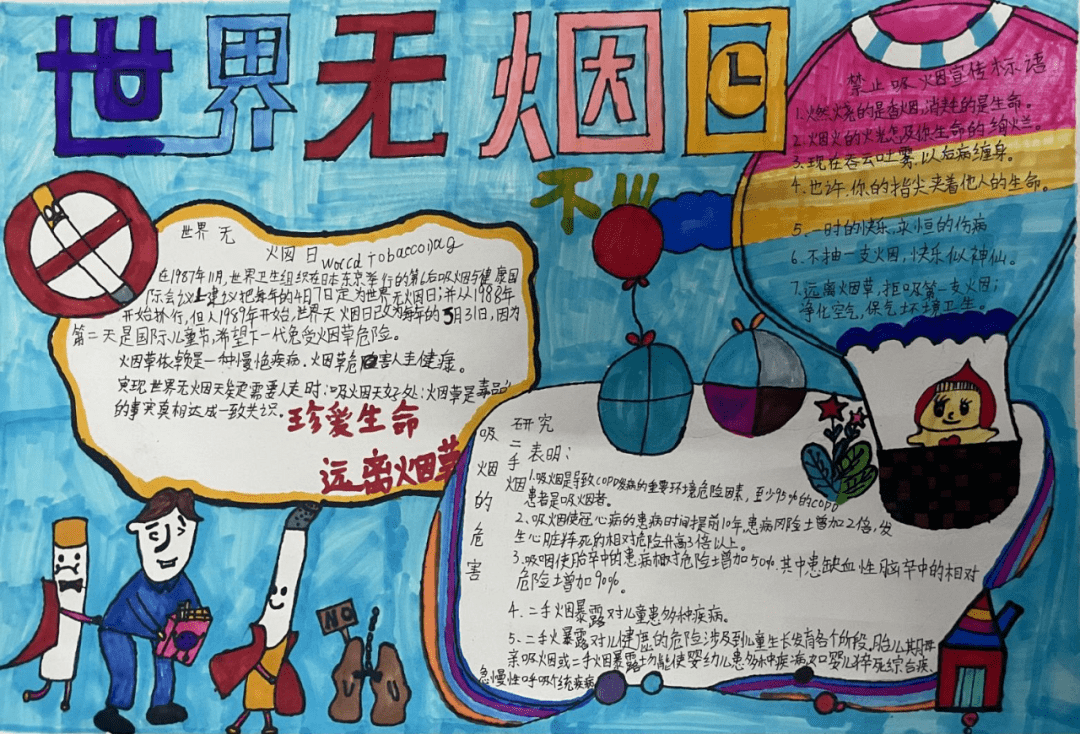 世界无烟日
不!!!
世界无
火因日World Tobacco Day
在1987年11月,世界卫生组织在日本东京举行的第六届吸烟与健康国
际会议上建议把每年的4月7日定为世界无火因日;并从1988年
开始执行,但从1989年开始,世界无火因日改为每年的5月31日,因为
第二天是国际儿童节,希望下一代免受火因草危险。
火因草依赖是一种慢性疾病,火因草危害人生健康。
实现世界无火因
的事实真相达成一致共识。
珍爱生命
远离火因草
禁止吸火因宣传标语
1.火燃烧的是香火因,消耗的是生命。
2.烟火的火光怎及你生命的绚火兰。
3.现在吞云吐雾,以后病缠身。
4.也许,你的指尖夹着他人的生命。
5.一时的快乐,永恒的伤病
6.不抽一支火因,快乐似神仙。
7.远离火因草,拒吸第一支火因;
净化空气,保气环境卫生。
吸烟的危害
研究
二手烟
表明:
1.吸火因是导致COPD发病的重要环境危险因素,至少95%的COPD
患者是吸火因者。
2、吸火因使冠心病的患病时间提前10年,患病风险增加2倍,发
生心脏猝死的相对危险升高3倍以上。
3.吸咽使脑卒中的患病相对危险增加50%.其中患缺血性脑卒中的相对
危险增加90%。
4.二手火因暴露对儿童患多种疾病。
5、二手火暴露对儿健康的危险涉及到儿童生长发育各个阶段,胎儿期母
亲吸火因或二手火因暴露功能使婴幼儿患多种疾病,如婴儿猝死综合症、
急慢性呼吸个统疾病
NO